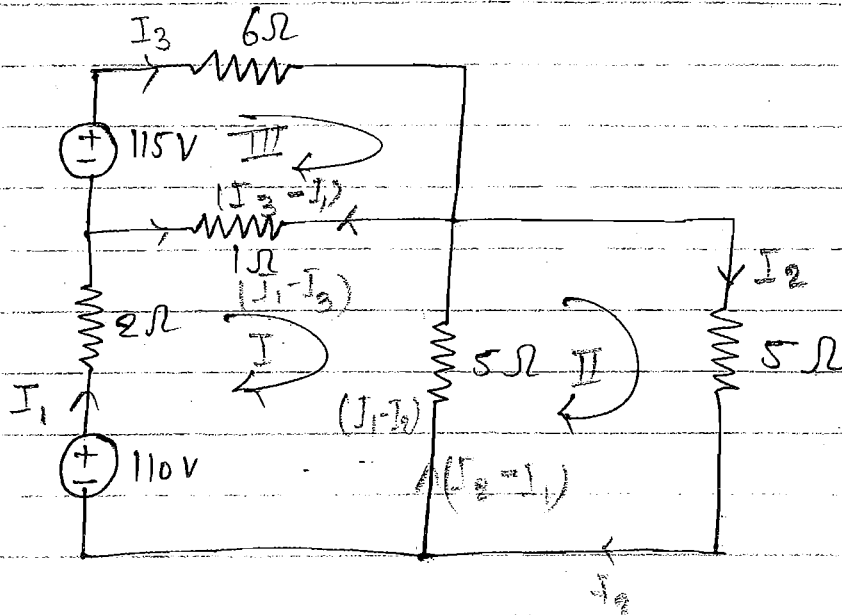 I₃ 6Ω
+
-
115V III
(I₃-I₁)
1Ω
(I₁-I₃)
I₂
2Ω I
5Ω II 5Ω
I₁
(I₁-I₂)
+
-
110V (I₂-I₁)
I₂